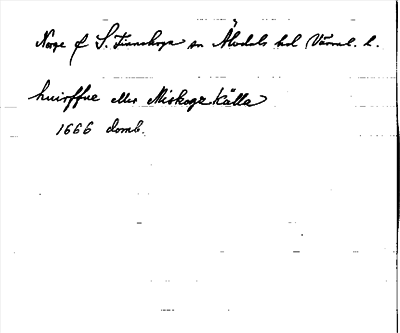 Norge f S. Finnskoga sn Älvdals hd Värml. l.
huirffne eller Miskoge Källa
1666 domb.